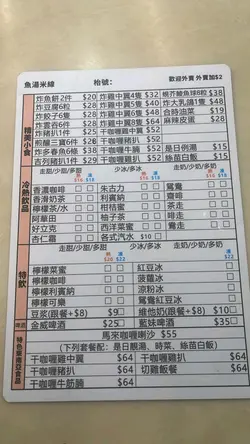 魚湯米線 枱號: 歡迎外賣 外賣加$2
精美小食
炸魚餅2件 $20 炸雞中翼4隻 $32 椒芥鯪魚球8粒 $38
炸豆腐6粒 $28 炸雞中翼5隻 $40 炸大乳鴿1隻 $48
炸餃子6隻 $28 炸雞中翼6隻 $48 合時油菜 $19
炸雲吞6件 $28 炸雞中翼8隻 $64 麻辣皮蛋 $28
炸豬扒1件 $25 干咖喱雞中翼 $52
煎釀三寶6件 $28 干咖喱豬扒 $52
炸多春魚6條 $38 干咖喱牛腩 $52 是日例湯 $15
吉列豬扒1件 $29 干咖喱雞扒 $52 絲苗白飯 $15
冷熱飲品
走甜/少甜/多甜 少冰/多冰 走奶/少奶/多奶
熱 凍 熱 凍 熱 凍
$16 $18 $16 $18 $16 $18
香濃咖啡 朱古力 鴛鴦
香滑奶茶 利賓納 齋啡
檸檬茶/水 柑桔蜜 齋茶
阿華田 柚子茶 茶走
好立克 西洋菜蜜 鴦走
杏仁霜 各式汽水 $10
特飲
走甜/少甜/多甜 少冰/多冰 走奶/少奶/多奶
熱 凍
$20 $22 $22
檸檬菜蜜 紅豆冰
檸檬咖啡 菠蘿冰
檸檬利賓納 涼粉冰
檸檬可樂 鴛鴦紅豆冰
豆漿(跟餐+$8) $9 維他奶(跟餐+$8) $10
啤酒 金威啤酒 $25 藍妹啤酒 $35
特色東南亞食品
馬來咖喱喇沙 $55
(下列套餐配：是日靚湯、時菜、絲苗白飯)
干咖喱雞中翼 $64 干咖喱雞扒 $64
干咖喱豬扒 $64 切雞飯餐 $64
干咖喱牛筋腩 $64